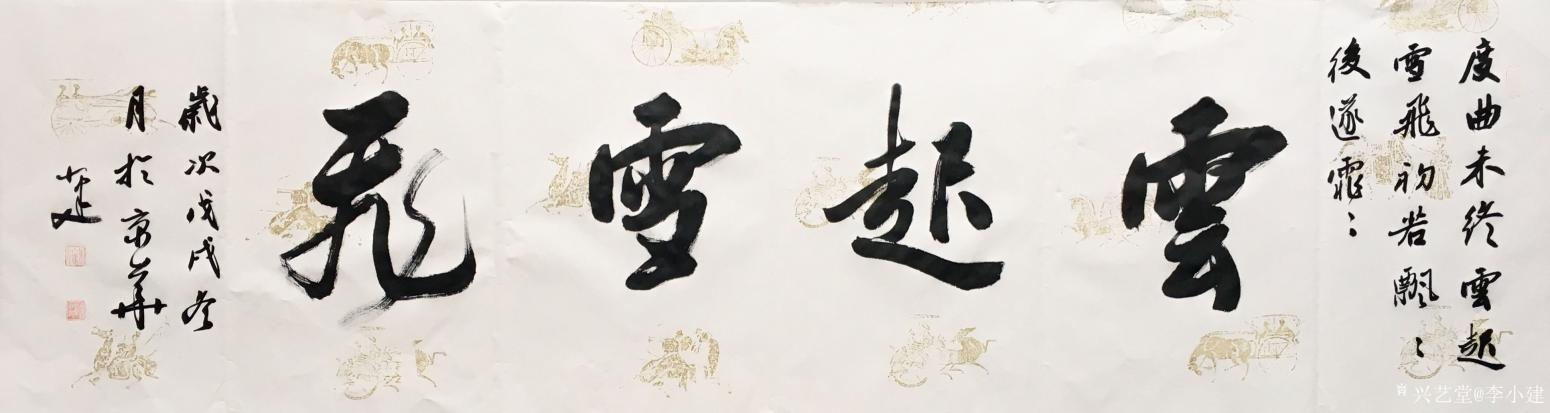 度曲未终雲起
雪飛初若飄〻
後遂霏〻
雲起雪飛
歲次戊戌冬
月於京華
小建
兴艺堂@李小建